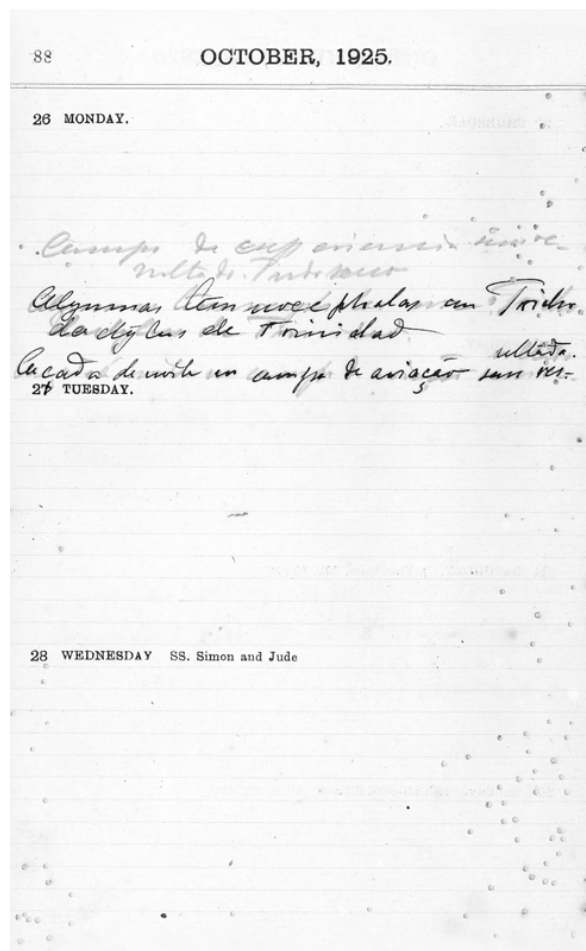 88 OCTOBER, 1925.
26 MONDAY.
Campo de experiencia sem re-
sultado.
Algumas Temnocephalas em Tricho
dactylus de Trinidad
Caçada de noite em campo de aviação sem res-
ultado.
27 TUESDAY.
28 WEDNESDAY SS. Simon and Jude